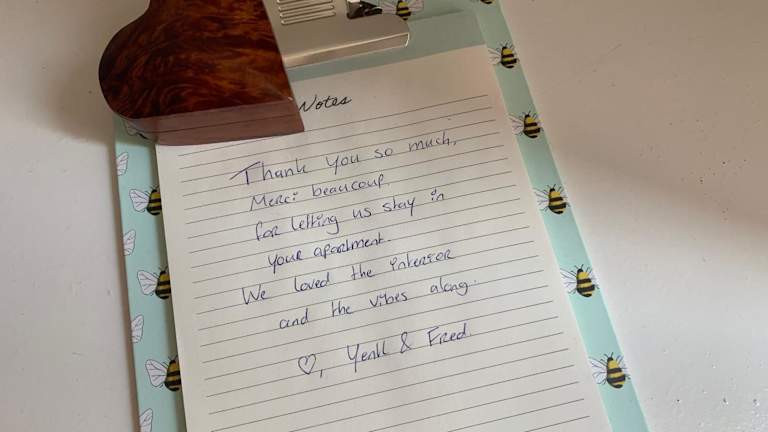 Notes
Thank you so much,
Merci beaucoup,
for letting us stay in
your apartment.
We loved the interior
and the vibes along.
♡, & Fred.